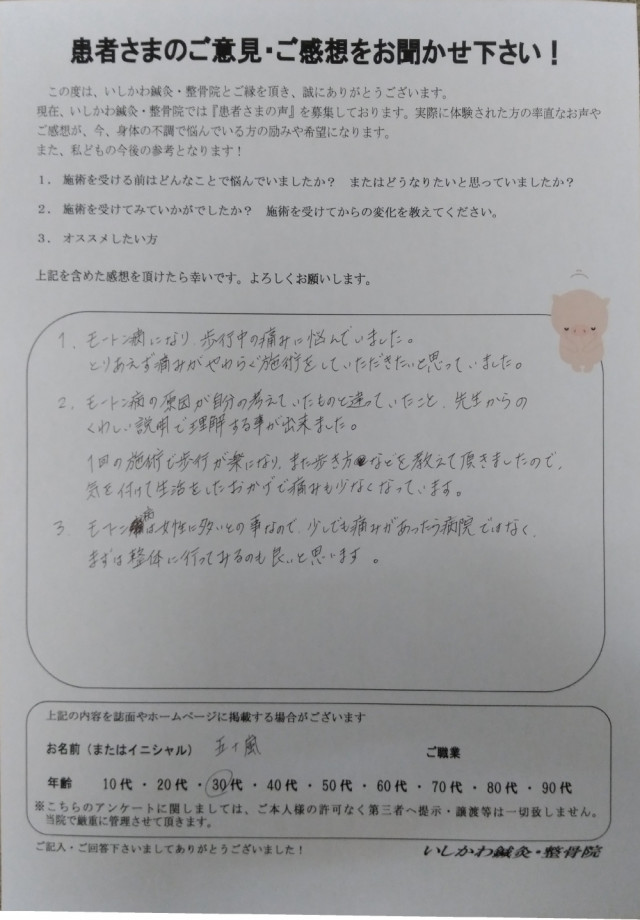 患者さまのご意見・ご感想をお聞かせ下さい！
この度は、いしかわ鍼灸・整骨院とご縁を頂き、誠にありがとうございます。
現在、いしかわ鍼灸・整骨院では『患者さまの声』を募集しております。実際に体験された方の率直なお声や
ご感想が、今、身体の不調で悩んでいる方の励みや希望になります。
また、私どもの今後の参考となります！
1．施術を受ける前はどんなことで悩んでいましたか？　またはどうなりたいと思っていましたか？
2．施術を受けてみていかがでしたか？　施術を受けてからの変化を教えてください。
3．オススメしたい方
上記を含めた感想を頂けたら幸いです。よろしくお願いします。
1. モートン病になり、歩行中の痛みに悩んでいました。
とりあえず痛みがやわらぐ施術をしていただきたいと思っていました。
2. モートン病の原因が自分の考えていたものと違っていたこと、先生からの
くわしい説明で理解する事が出来ました。
1回の施術で歩行が楽になり、また歩き方などを教えて頂きましたので、
気を付けて生活をしたおかげで痛みも少なくなっています。
3 モートン病は女性に多いとの事なので、少しでも痛みがあったら病院ではなく、
まずは整体に行ってみるのも良いと思います。
上記の内容を誌面やホームページに掲載する場合がございます
お名前（またはイニシャル） 五十嵐 ご職業
年齢 10代・20代・30代・40代・50代・60代・70代・80代・90代
※こちらのアンケートに関しましては、ご本人様の許可なく第三者へ提示・譲渡等は一切致しません。
当院で厳重に管理させて頂きます。
ご記入・ご回答下さいましてありがとうございました！ いしかわ鍼灸・整骨院